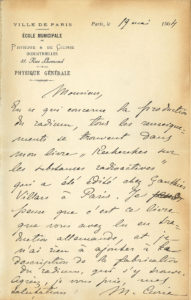 VILLE DE PARIS
Paris, le 19 mai 1904
ÉCOLE MUNICIPALE
DE
PHYSIQUE & DE CHIMIE
INDUSTRIELLES
42, Rue Lhomond
PHYSIQUE GÉNÉRALE
Monsieur,
En ce qui concerne la production
du radium, tous les renseigne-
ments se trouvent dans
mon livre "Recherches sur
les substances radioactives"
qui a été édité chez Gauthier
Villars à Paris. Je
pense que c'est ce livre
que vous avez lu en tra-
duction allemande, et je
n'ai rien à ajouter à la
description de la fabrication
du radium, qui s'y trouve.
Agréez, je vous prie, mes
salutations
M. Curie